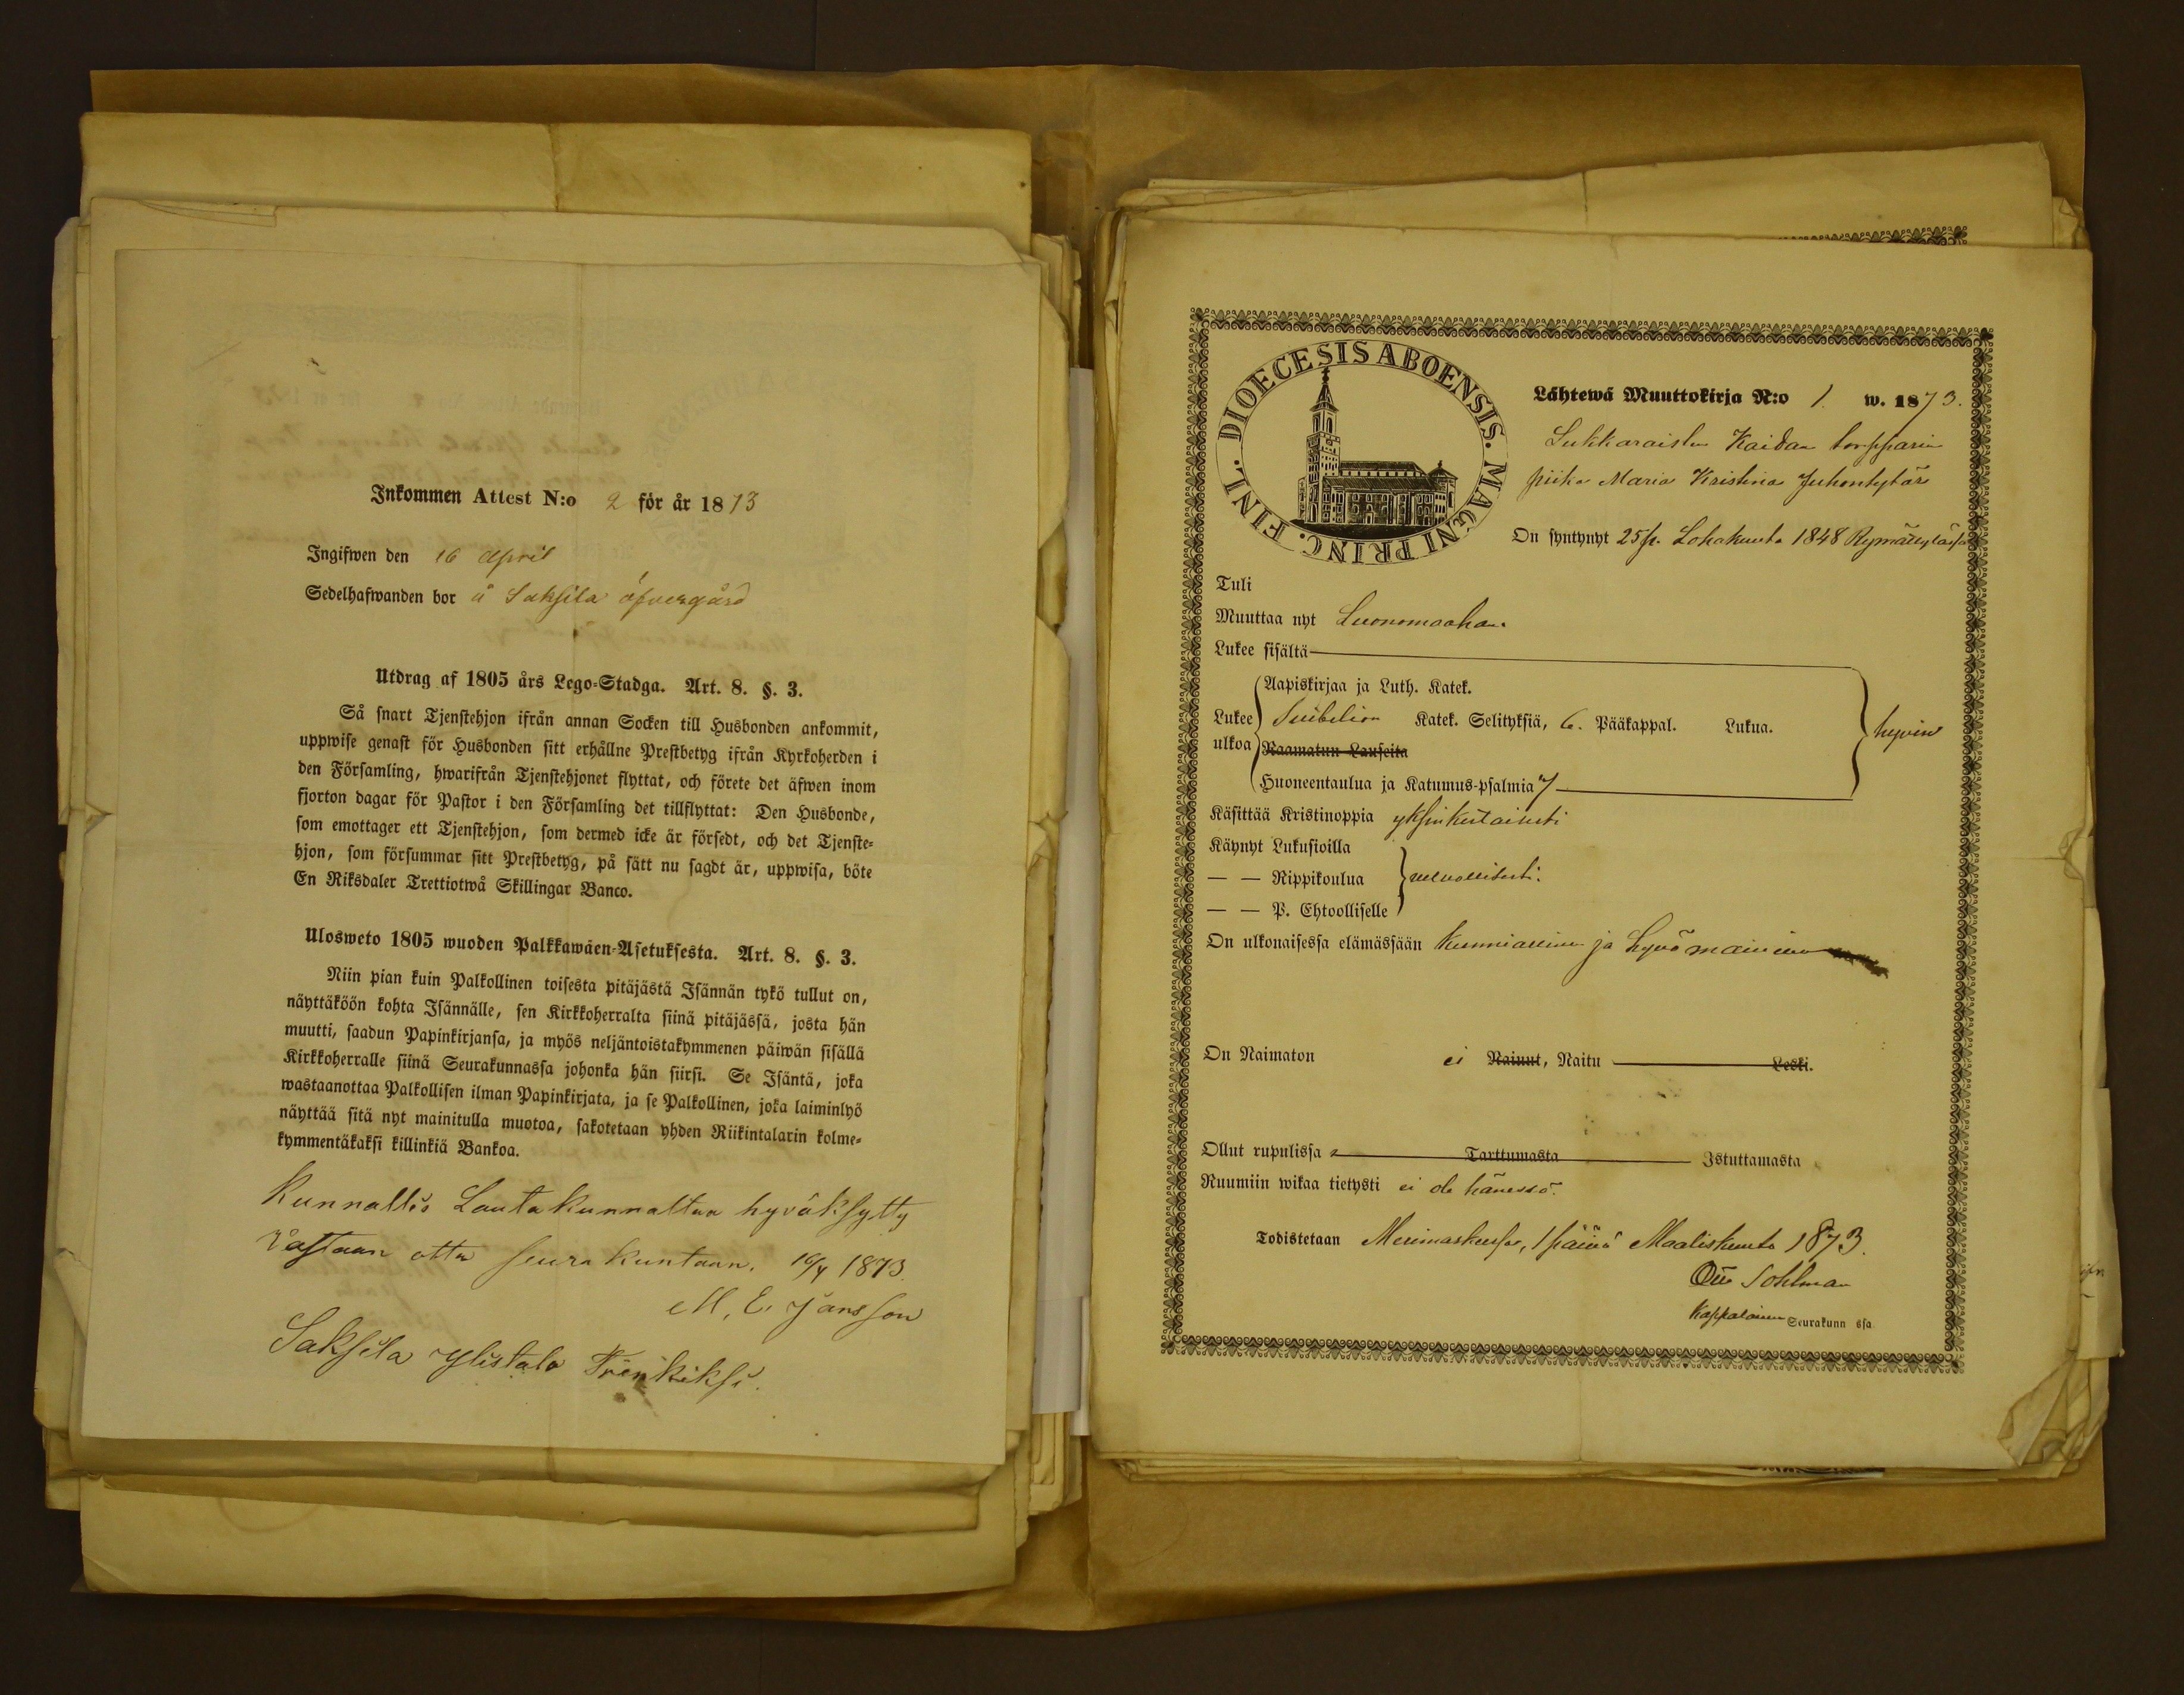 Inkommen Attest N:o 2 för år 1873
Ingifwen den 16 April
Sedelhafwanden bor å Saksila öfvergård
Utdrag af 1805 års Lego-Stadga. Art. 8. §. 3.
Så snart Tjenstehjon ifrån annan Socken till Husbonden ankommit,
uppwise genast för Husbonden sitt erhållne Prestbetyg ifrån Kyrkoherden i
den Församling, hwarifrån Tjenstehjonet flyttat, och förete det äfwen inom
fjorton dagar för Pastor i den Församling det tillflyttat: Den Husbonde,
som emottager ett Tjenstehjon, som dermed icke är försedt, och det Tjenste-
hjon, som försummar sitt Prestbetyg, på sätt nu sagdt är, uppwisa, böte
En Riksdaler Trettiotwå Skillingar Banco.
Ulosweto 1805 wuoden Palkkawäen-Asetuksesta. Art. 8. §. 3.
Niin pian kuin Palkollinen toisesta pitäjästä Isännän tykö tullut on,
näyttäköön kohta Isännälle, sen Kirkkoherralta siinä pitäjässä, josta hän
muutti, saadun Papinkirjansa, ja myös neljäntoistakymmenen päiwän sisällä
Kirkkoherralle siinä Seurakunnassa johonka hän siirsi. Se Isäntä, joka
wastaanottaa Palkollisen ilman Papinkirjata, ja se Palkollinen, joka laiminlyö
näyttää sitä nyt mainitulla muotoa, sakotetaan yhden Riikintalarin kolme-
kymmentäkaksi killinkiä Bankoa.
Kunnallis Lautakunnaltaa hyväksytty
vastaan otta seurakuntaan. 16/4 1873.
M. E. Jansson
Saksila Ylistalo Trenkiksi.
DIOECESIS ABOENSIS. MAGNI PRINC. FINL.
Lähtewä Muuttokirja N:o 1. w. 1873.
Lukkaraisten Kaidan torpparin
piika Maria Kristina Juhontytär
On syntynyt 25 p. Lokakuuta 1848 Rymättylässä
Tuli
Muuttaa nyt Luonomaahan.
Lukee sisältä
Aapiskirjaa ja Luth. Katek.
Lukee ulkoa Katek. Selityksiä, 6. Pääkappal. Lukua. hyvin
Raamatun Lauseita
Huoneentaulua ja Katumus-psalmia 7
Käsittää Kristinoppia yksinkertaisesti
Käynyt Lukusioilla
— — Rippikoulua velvollisesti.
— — P. Ehtoolliselle
On ulkonaisessa elämässään kunniallinen ja hyvämaininen
On Naimaton ei Nainut, Naitu Leski.
Ollut rupulissa Tarttumasta Istuttamasta
Ruumiin wikaa tietysti ei ole hänessä.
Todistetaan Merimaskussa, 1 päivä Maaliskuuta 1873.
Otto Sohlman
Kappalainen Seurakunnassa